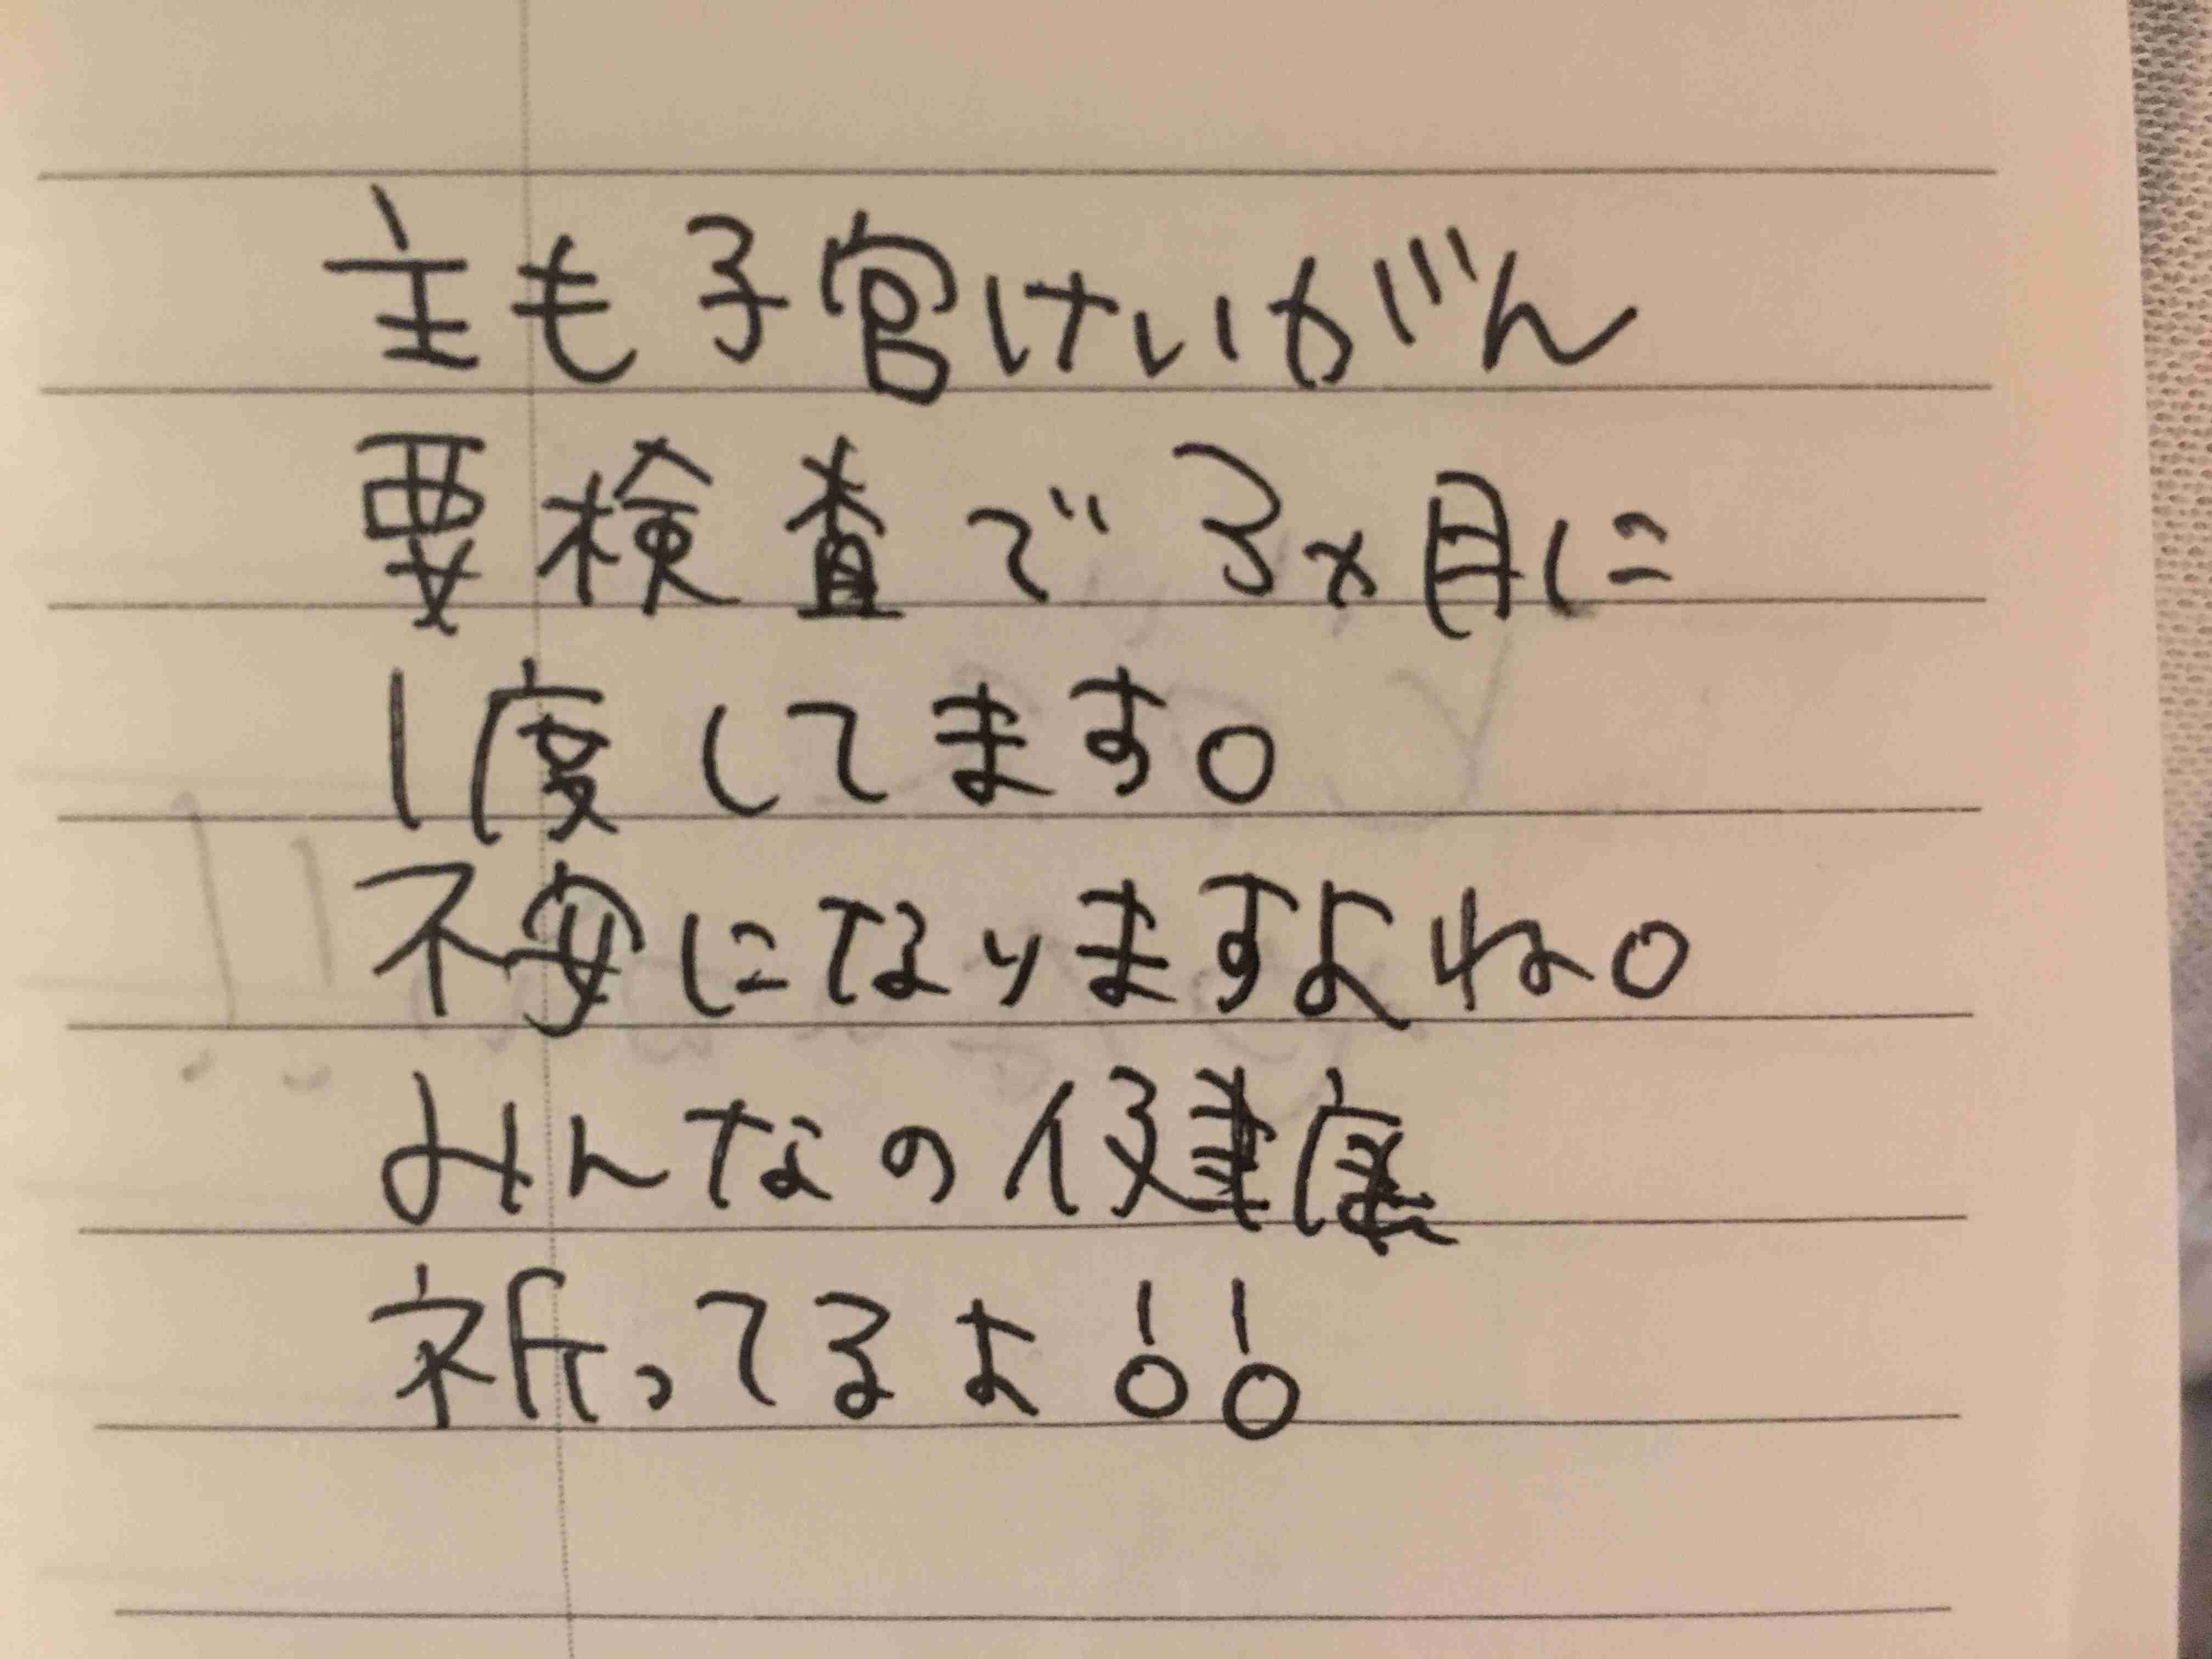 主も子宮けいがん
要検査で3ヶ月に
1度してます。
不安になりますよね。
みんなの健康
祈ってるよ!!